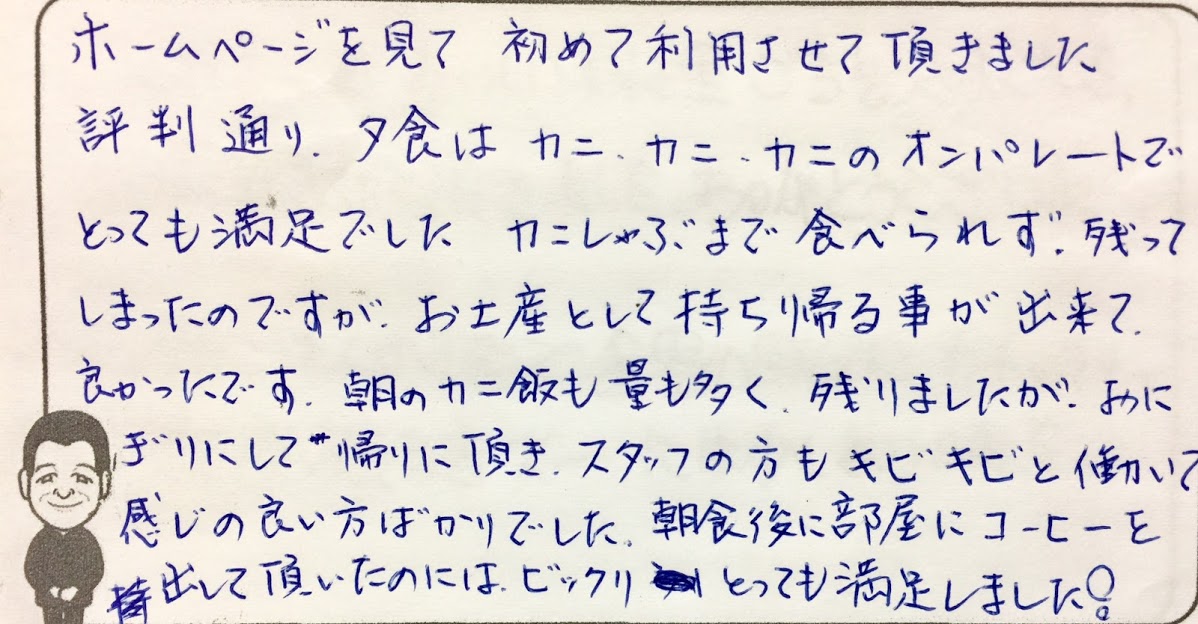 ホームページを見て 初めて利用させて頂きました
評判通り、夕食は カニ、カニ、カニの オンパレートで
とっても満足でした カニしゃぶまで食べられず、残って
しまったのですが、お土産として持ち帰る事が出来て、
良かったです。朝のカニ飯も量も多く、残りましたが、おに
ぎりにして帰りに頂き、スタッフの方もキビキビと働いて
感じの良い方ばかりでした。朝食後に部屋にコーヒーを
出して頂いたのには、ビックリ とっても満足しました!